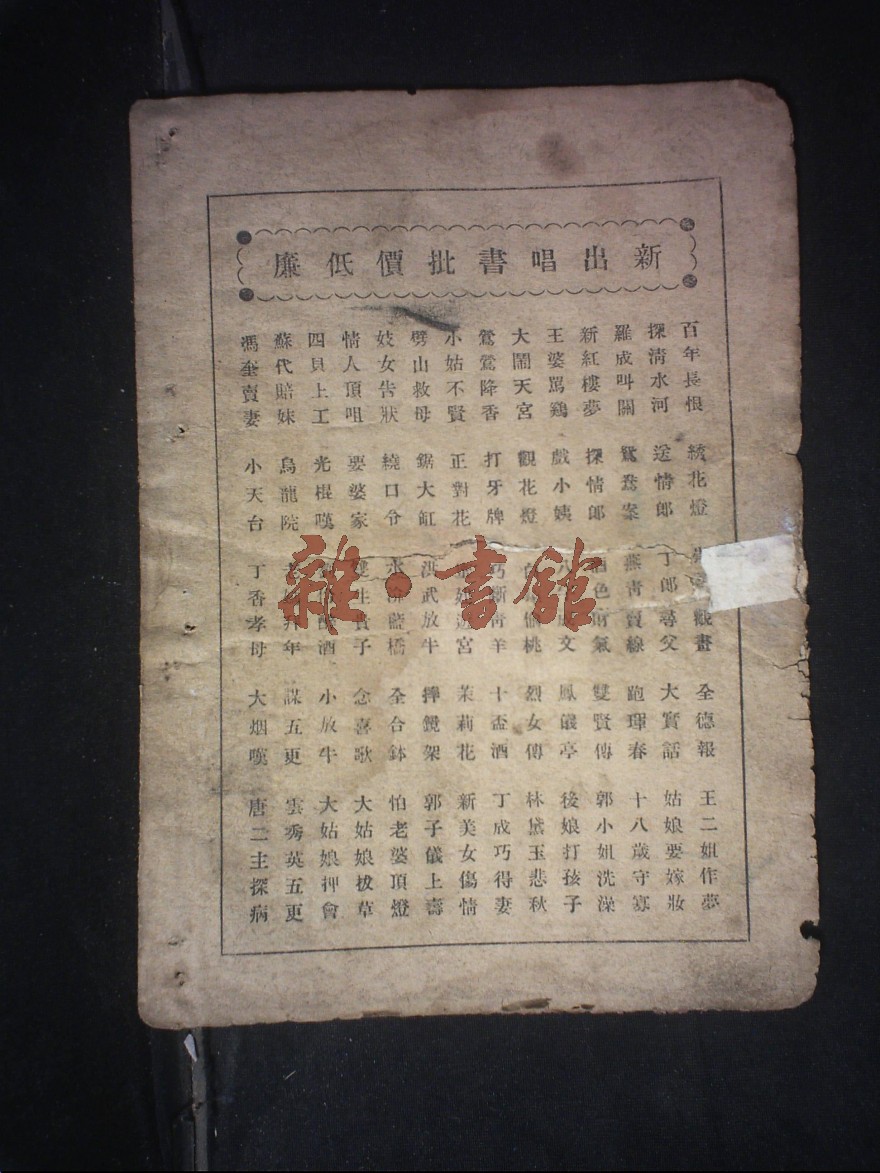 新出唱書批價低廉
百年長恨 綉花燈 觀畫 全德報 王二姐作夢
探清水河 送情郎 丁郎尋父 大實話 姑娘要嫁妝
羅成呌關 鴛鴦案 燕青賣線 跑琿春 十八歲守寡
新紅樓夢 探情郎 色財氣 雙賢傳 郭小姐洗澡
王婆罵鷄 戲小姨 文 鳳儀亭 後娘打孩子
大鬧天宮 觀花燈 偷桃 烈女傳 林黛玉悲秋
鶯鶯降香 打牙牌 巧斷青羊 十盃酒 丁成巧得妻
小姑不賢 正對花 宮 茉莉花 新美女傷情
劈山救母 鋸大缸 洪武放牛 摔鏡架 郭子儀上壽
妓女告狀 繞口令 水漫藍橋 全合鉢 怕老婆頂燈
情人頂咀 要婆家 生貴子 念喜歌 大姑娘拔草
四貝上工 光棍嘆 酒 小放牛 大姑娘押會
蘇代賠妹 烏龍院 拜年 謀五更 雲秀英五更
馮奎賣妻 小天台 丁香孝母 大烟嘆 唐二主探病
雜·書館